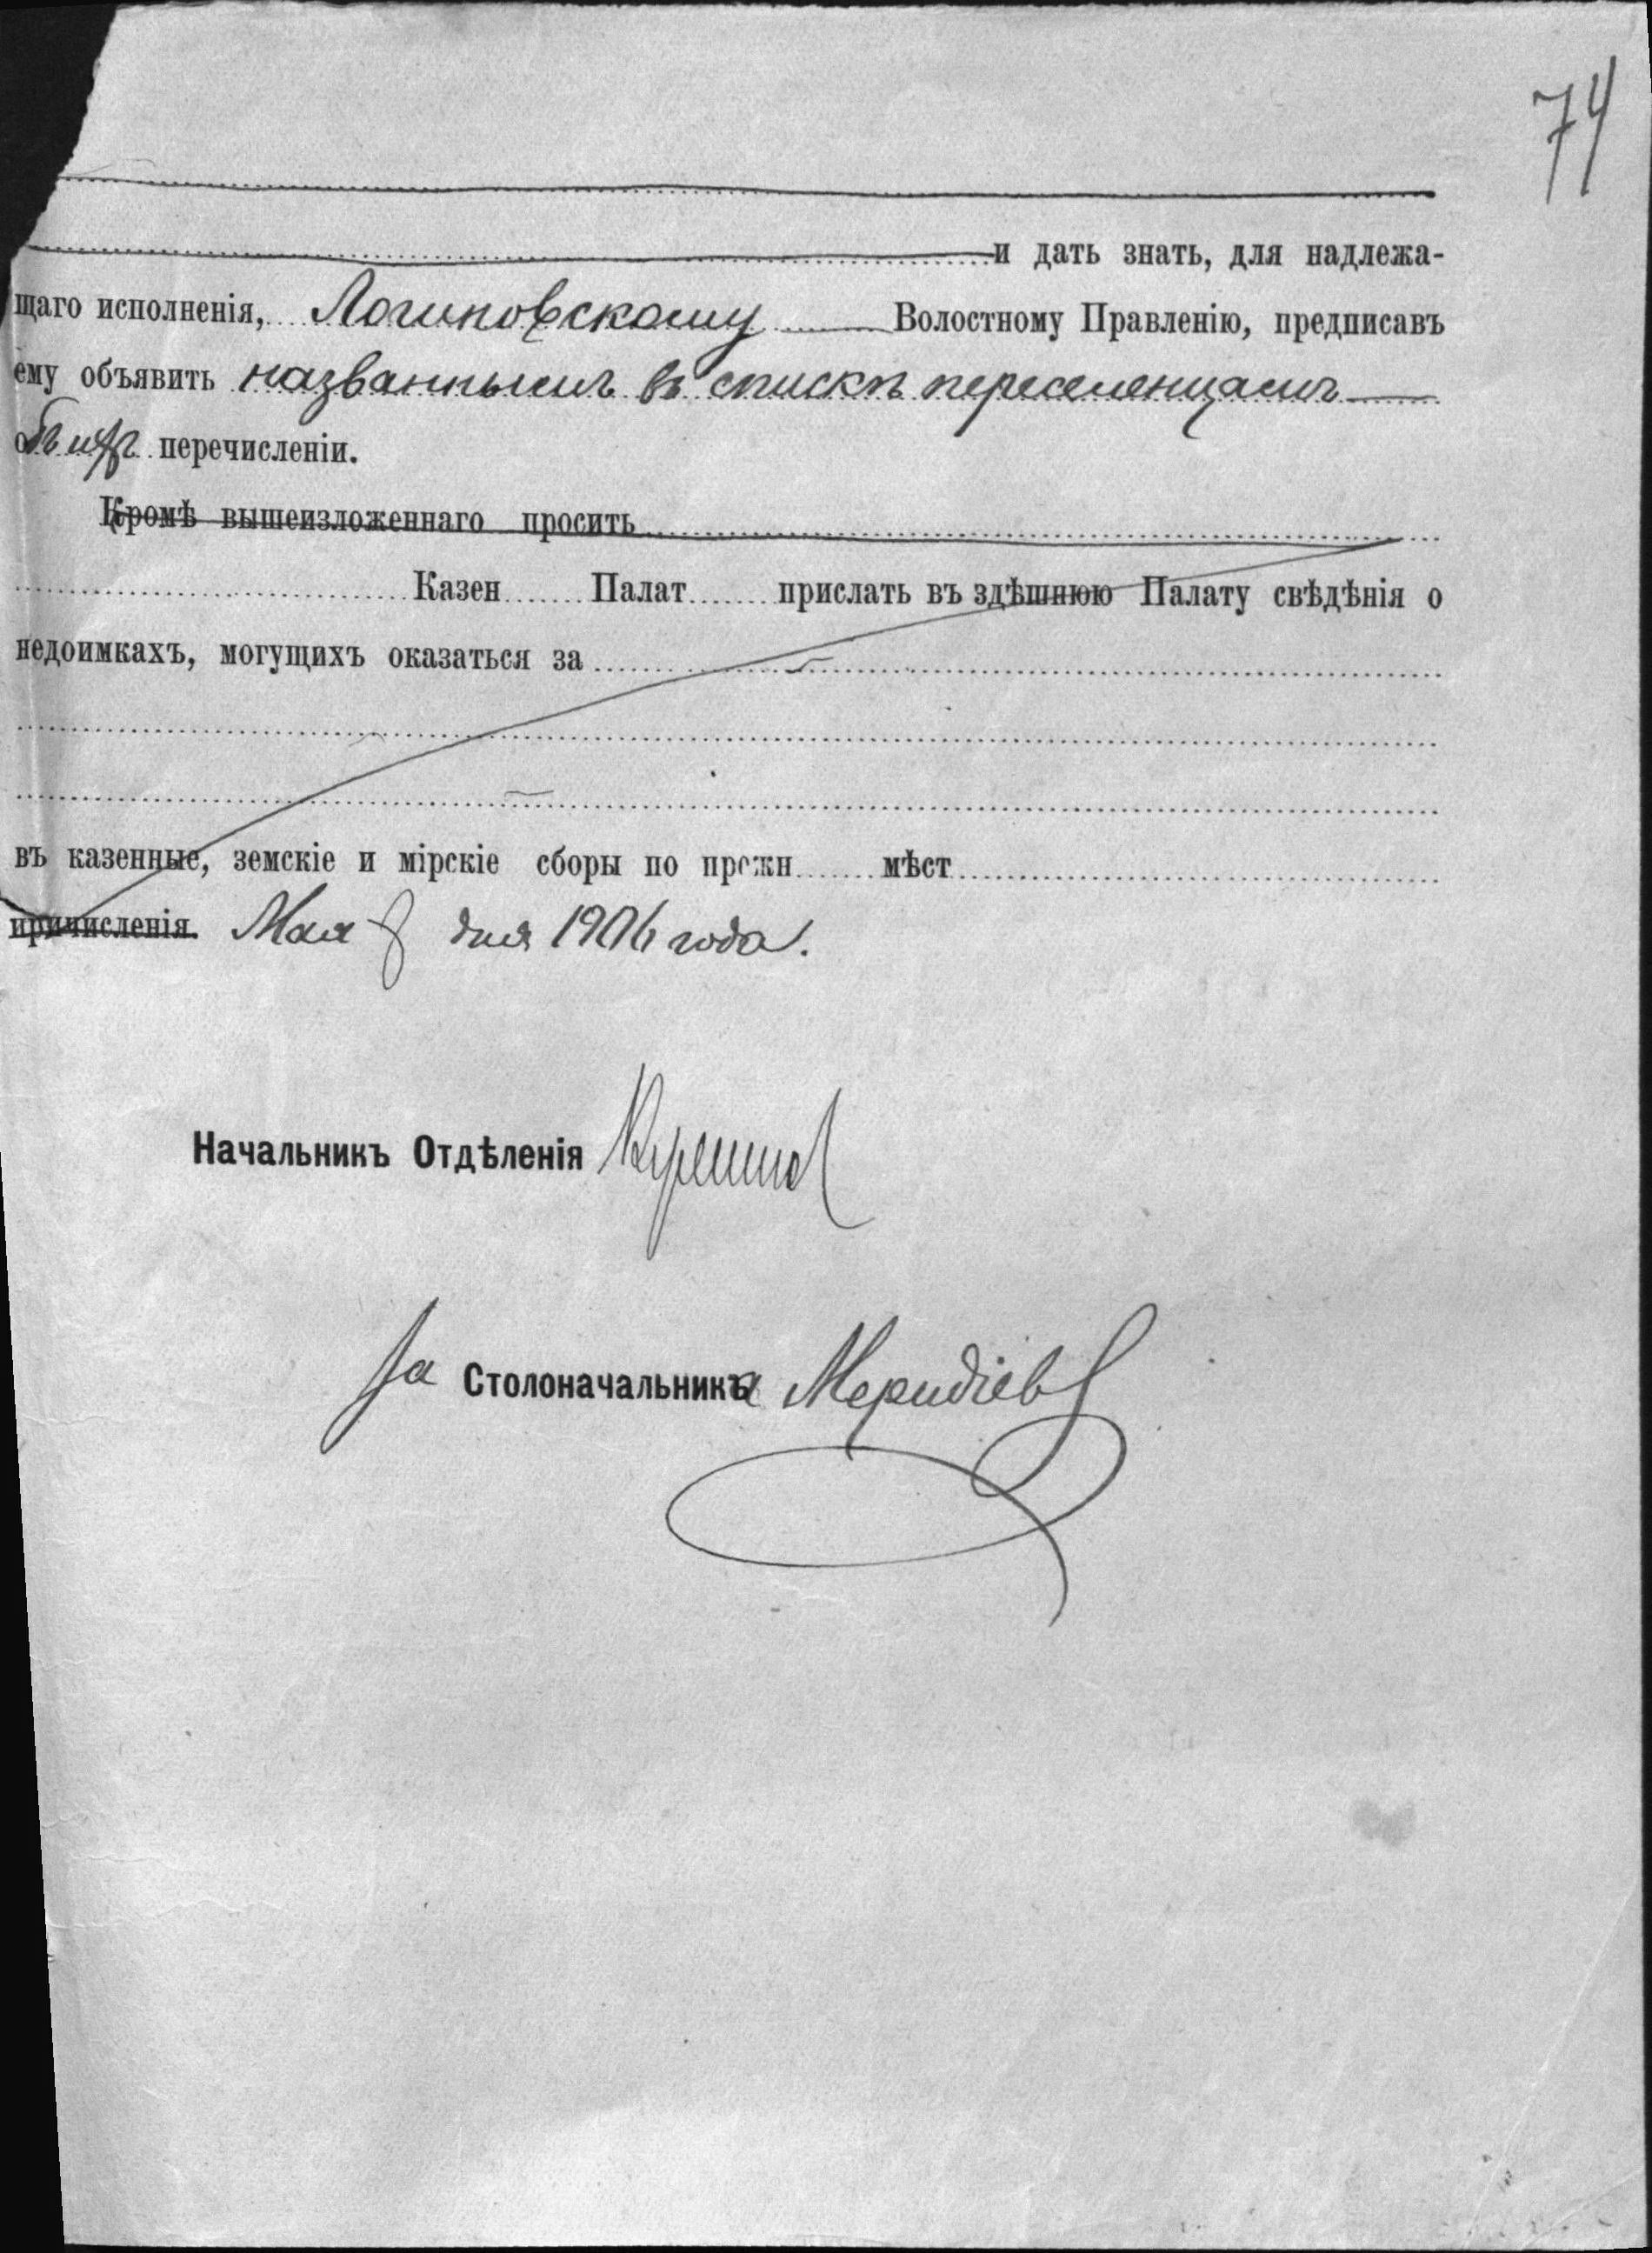 74
и дать знать, для надлежа-
щаго исполненія, Логиновскому Волостному Правленію, предписавъ
ему объявить названнымъ въ спискѣ переселенцамъ
объ ихъ перечисленіи.
Кромѣ вышеизложеннаго просить
Казен Палат прислать въ здѣшнюю Палату свѣдѣнія о
недоимкахъ, могущихъ оказаться за
въ казенные, земскіе и мірскіе сборы по прежн мѣст
причисленія. Мая 8 дня 1906 года.
Начальникъ Отдѣленія
За Столоначальника Меридіевъ